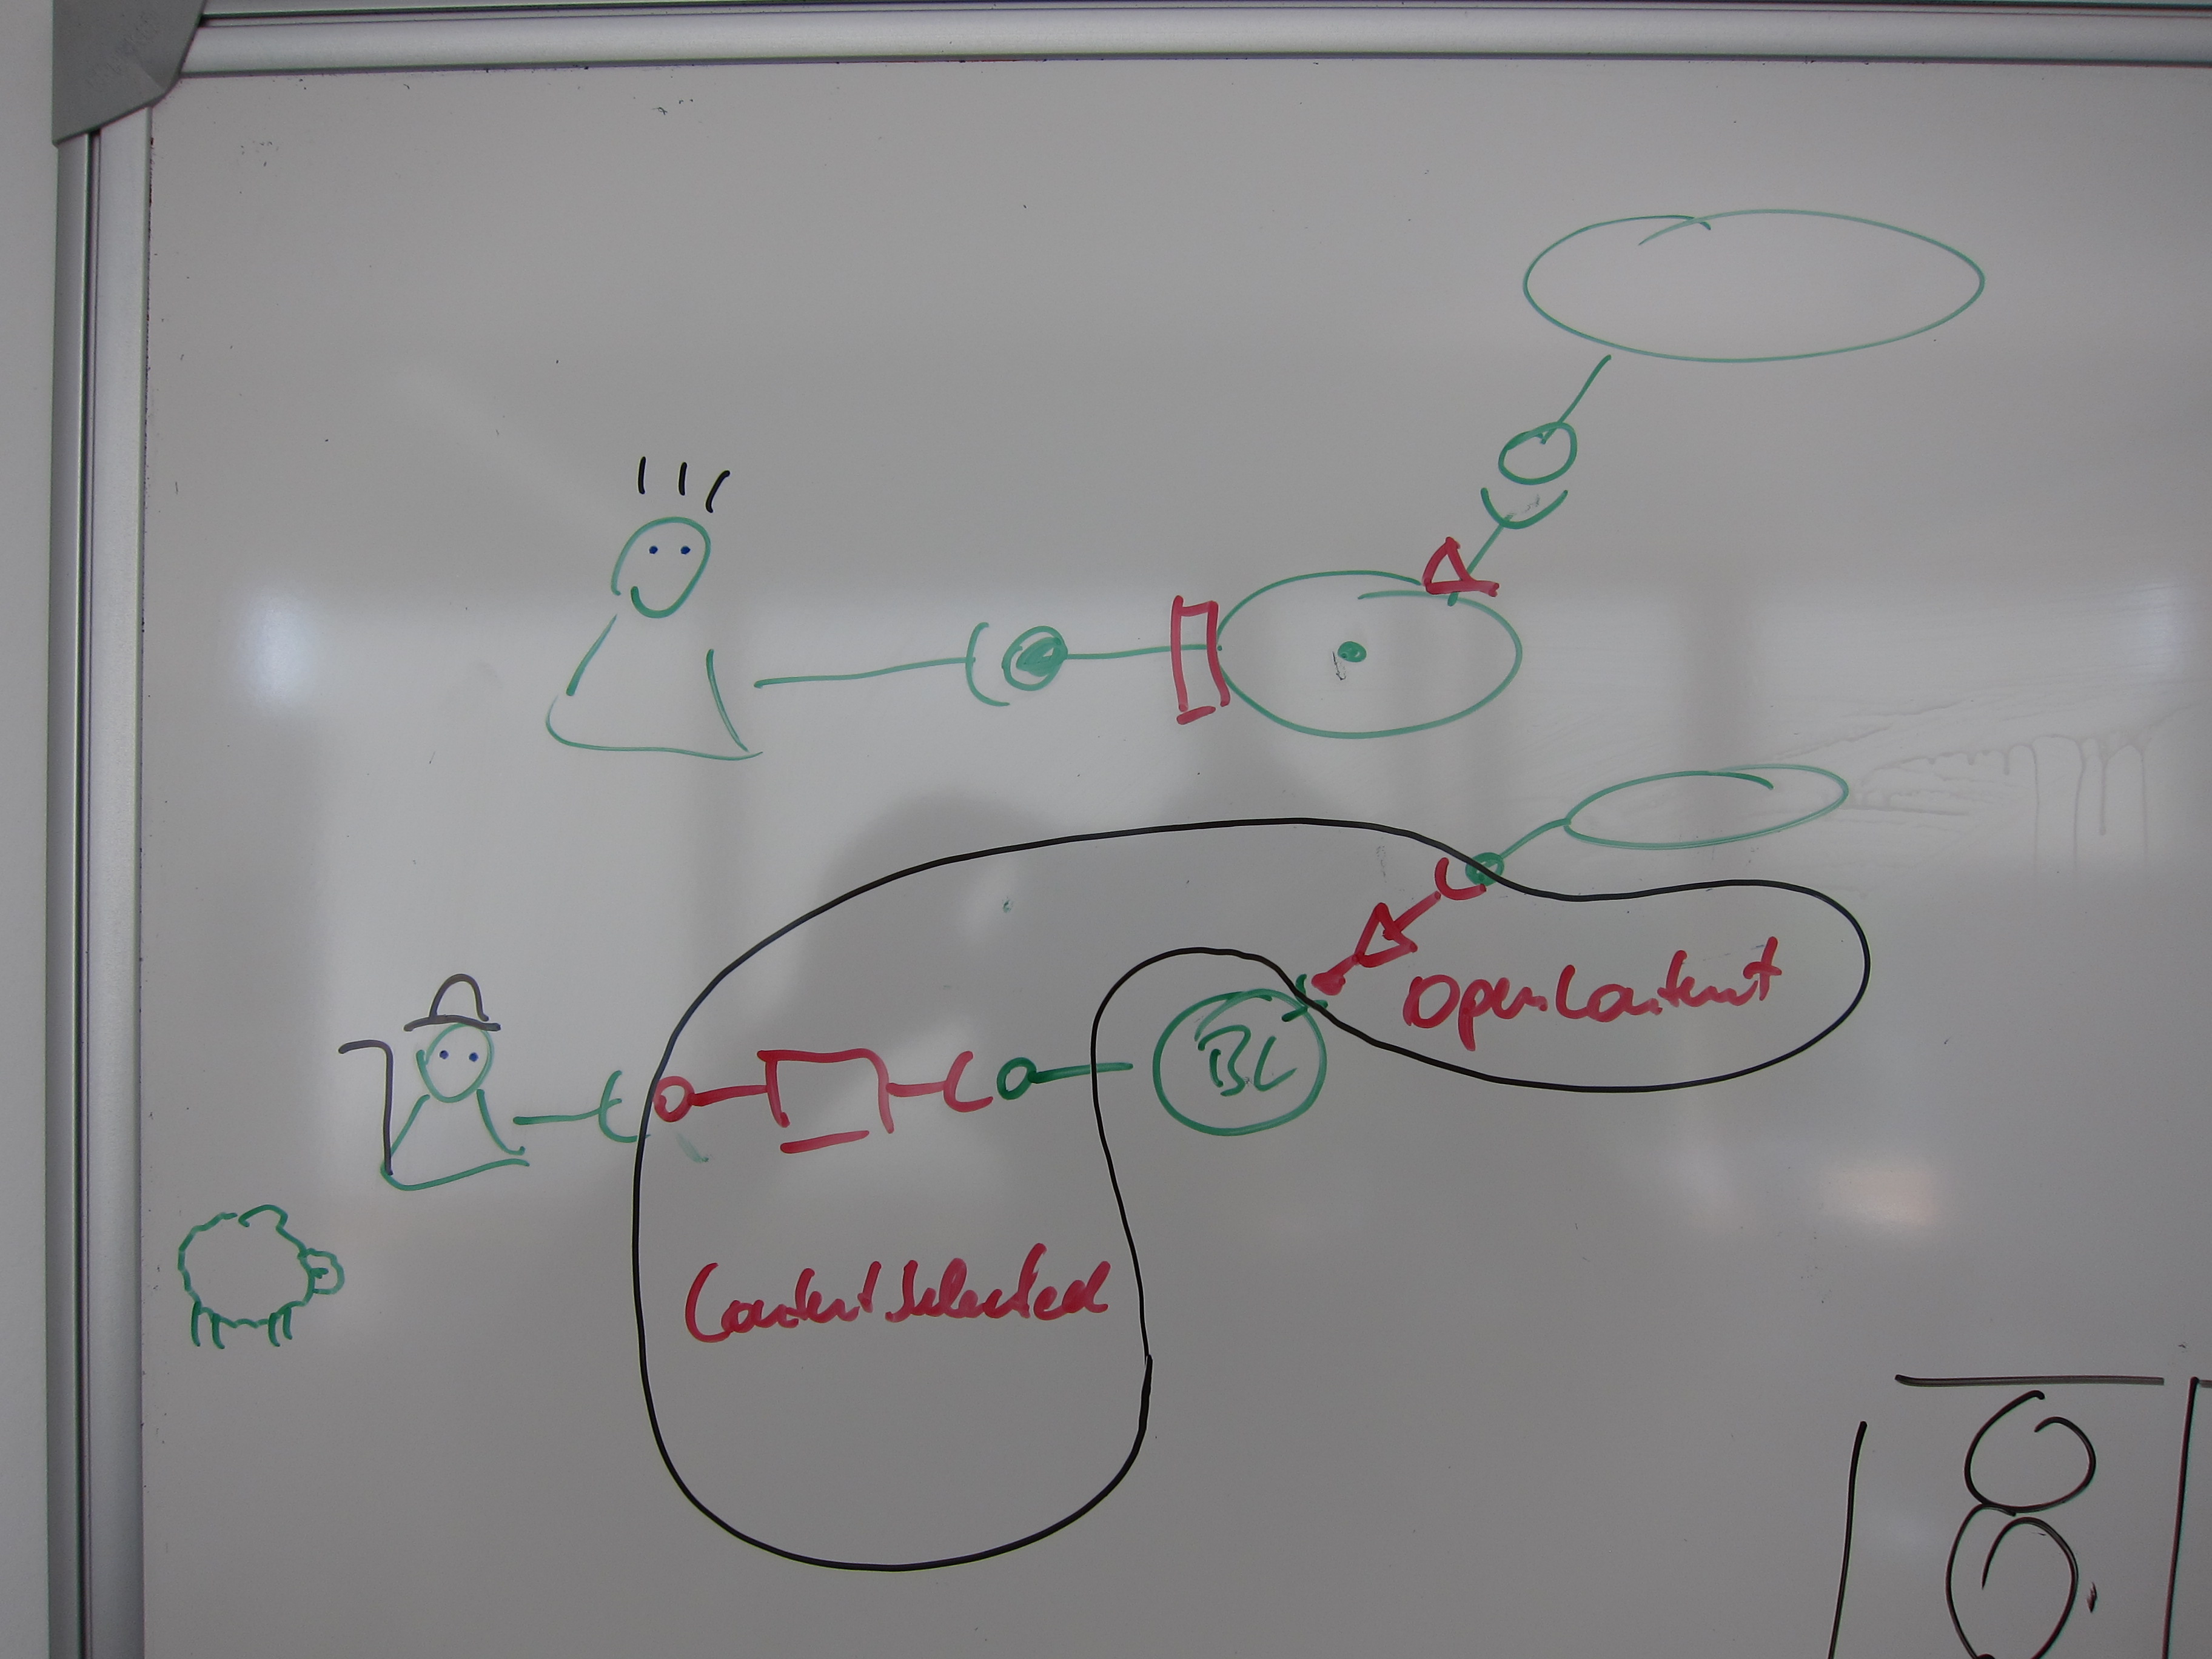 OpenContent
BL
ContentSelected